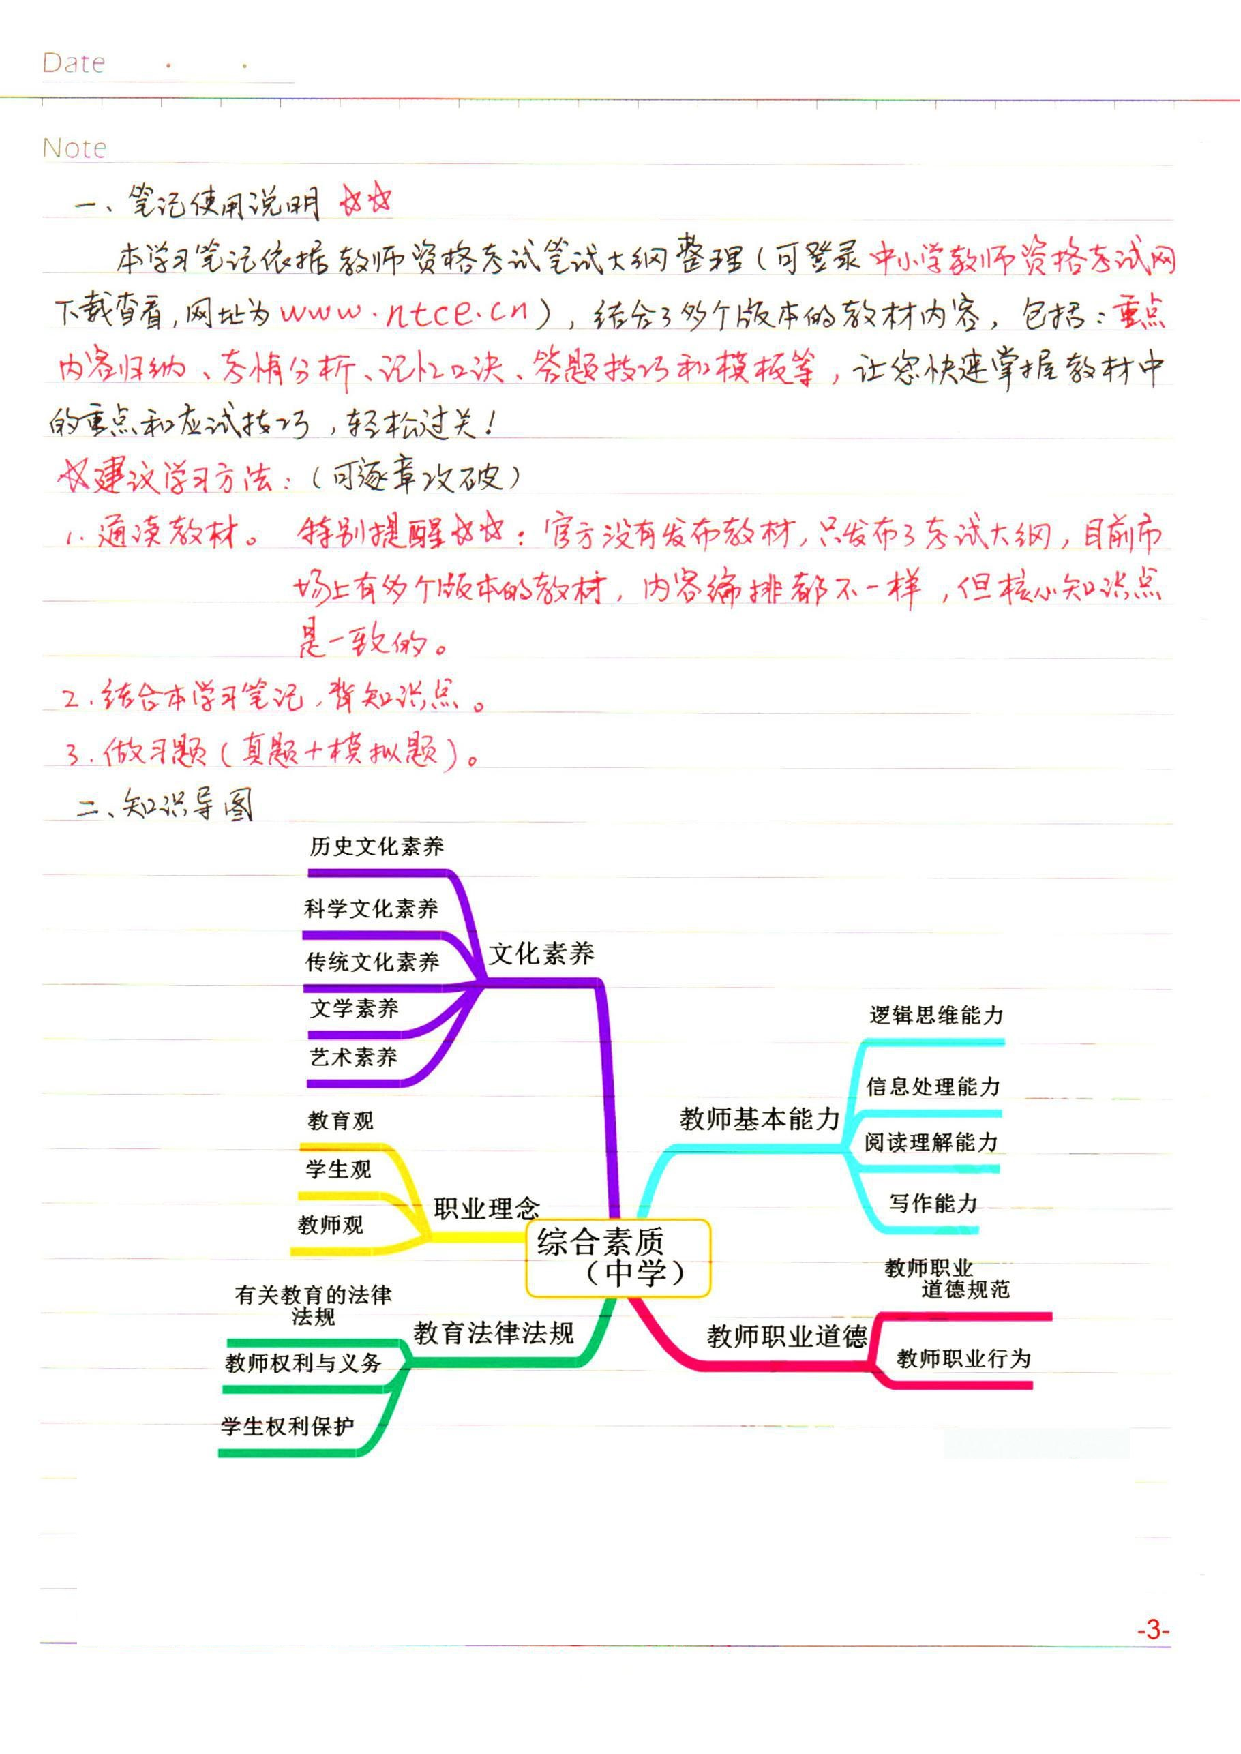 Date
Note
一、笔记使用说明 ☆☆
本学习笔记依据教师资格考试笔试大纲整理(可登录中小学教师资格考试网
下载查看,网址为www.ntce.cn),结合了多个版本的教材内容,包括:重点
内容归纳、考情分析、记忆口诀、答题技巧和模板等,让您快速掌握教材中
的重点和应试技巧,轻松过关!
☆建议学习方法:(可逐章攻破)
1.通读教材。 特别提醒☆☆:官方没有发布教材,只发布了考试大纲,目前市
场上有多个版本的教材,内容编排都不一样,但核心知识点
是一致的。
2.结合本学习笔记,背知识点。
3.做习题(真题+模拟题)。
二、知识导图
历史文化素养
科学文化素养
传统文化素养
文学素养
艺术素养
文化素养
教育观
学生观
教师观
职业理念
有关教育的法律
法规
教师权利与义务
学生权利保护
教育法律法规
综合素质
(中学)
教师基本能力
逻辑思维能力
信息处理能力
阅读理解能力
写作能力
教师职业道德
教师职业
道德规范
教师职业行为
-3-